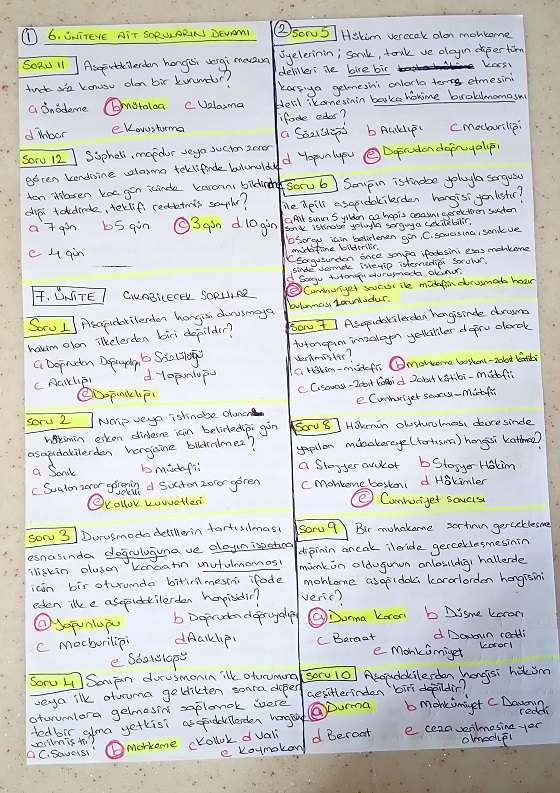 ① 6. ÜNİTEYE AİT SORULARIN DEVAMI
SORU 11 Aşağıdakilerden hangisi vergi mevzua
tında söz konusu olan bir kurumdur?
a Önödeme b Mütalaa c Uzlaşma
d İhbar e Kovuşturma
Soru 12 Şüpheli, mağdur veya suçtan zarar
gören kendisine uzlaşma teklifinde bulunulduk
tan itibaren kaç gün içinde kararını bildirme
diği takdirde, teklifi reddetmiş sayılır?
a 7 gün b 5 gün c 3 gün d 10 gün
e 4 gün
7. ÜNİTE ÇIKABİLECEK SORULAR
Soru 1 Aşağıdakilerden hangisi duruşmaya
hakim olan ilkelerden biri değildir?
a Doğrudan Doğruyalığı b Sözlülüğü
c Açıklığı d Yoğunluğu
e Dağınıklığı
Soru 2 Naip veya istinabe olunan
hâkimin erken dinleme için belirlediği gün
aşağıdakilerden hangisine bildirilmez?
a Sanık b Müdafii
c Suçtan zarar görenin vekili d Suçtan zarar gören
e Kolluk kuvvetleri
Soru 3 Duruşmada delillerin tartışılması
esnasında doğruluğuna ve olayın ispatına
ilişkin oluşan kanaatin unutulmaması
için bir oturumda bitirilmesini ifade
eden ilke aşağıdakilerden hangisidir?
a Yoğunluğu b Doğrudan doğruyalığı
c Mecburiliği d Açıklığı
e Sözlülüğü
Soru 4 Sanığın duruşmanın ilk oturumuna
veya ilk oturuma geldikten sonra diğer
oturumlara gelmesini sağlamak üzere
tedbir alma yetkisi aşağıdakilerden hangisine
verilmiştir?
a C. Savcısı b Mahkeme c Kolluk d Vali
e Kaymakam
② Soru 5 Hüküm verecek olan mahkeme
üyelerinin; sanık, tanık ve olayın diğer tüm
delilleri ile bire bir karşı
karşıya gelmesini onlarla temas etmesini
delil ikamesinin başka hâkime bırakılmamasını
ifade eder?
a Sözlülüğü b Açıklığı c Mecburiliği
d Yoğunluğu e Doğrudan doğruyalığı
Soru 6 Sanığın istinabe yoluyla sorgusu
ile ilgili aşağıdakilerden hangisi yanlıştır?
a Alt sınırı 5 yıldan az hapis cezasını gerektiren suçtan
sanık istinabe yoluyla sorguya çekilebilir.
b Sorgu için belirlenen gün, C. savcısına, sanık ve
müdafiine bildirilir.
c Sorgusundan önce sanığa ifadesini esas mahkeme
sinde vermek isteyip istemediği sorulur.
d Sorgu tutanağı duruşmada okunur.
e Cumhuriyet savcısı ile müdafiin duruşmada hazır
bulunması zorunludur.
Soru 7 Aşağıdakilerden hangisinde duruşma
tutanağını imzalayan yetkililer doğru olarak
verilmiştir?
a Hâkim - müdafii b Mahkeme başkanı - zabıt kâtibi
c C. savcısı - Zabıt kâtibi d Zabıt kâtibi - Müdafii
e Cumhuriyet savcısı - Müdafii
Soru 8 Hükmün oluşturulması devresinde
yapılan müzakereye (tartışma) hangisi katılmaz?
a Stajyer avukat b Stajyer Hâkim
c Mahkeme başkanı d Hâkimler
e Cumhuriyet savcısı
Soru 9 Bir muhakeme şartının gerçekleşme
diğinin ancak ileride gerçekleşmesinin
mümkün olduğunun anlaşıldığı hallerde
mahkeme aşağıdaki kararlardan hangisini
verir?
a Durma kararı b Düşme kararı
c Beraat d Davanın reddi
e Mahkûmiyet kararı
Soru 10 Aşağıdakilerden hangisi hüküm
çeşitlerinden biri değildir?
a Durma b Mahkûmiyet c Davanın
reddi
d Beraat e ceza verilmesine yer
olmadığı